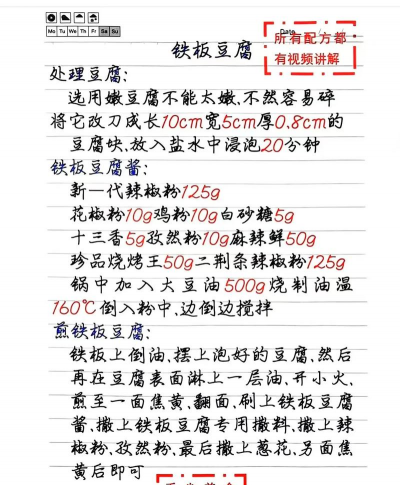 Mo Tu We Th Fr Sa Su
Date
所有配方都
有视频讲解
铁板豆腐
处理豆腐:
选用嫩豆腐不能太嫩、不然容易碎
将它改刀成长10cm宽5cm厚0.8cm的
豆腐块、放入盐水中浸泡20分钟
铁板豆腐酱:
新一代辣椒粉125g
花椒粉10g鸡粉10g白砂糖5g
十三香5g孜然粉10g麻辣鲜50g
珍品烧烤王50g二荆条辣椒粉125g
锅中加入大豆油500g烧制油温
160℃倒入粉中、边倒边搅拌
煎铁板豆腐:
铁板上倒油、摆上泡好的豆腐、然后
再在豆腐表面淋上一层油、开小火、
煎至一面焦黄、翻面、刷上铁板豆腐
酱、撒上铁板豆腐专用撒料、撒上辣
椒粉、孜然粉、最后撒上葱花、另面焦
黄后即可